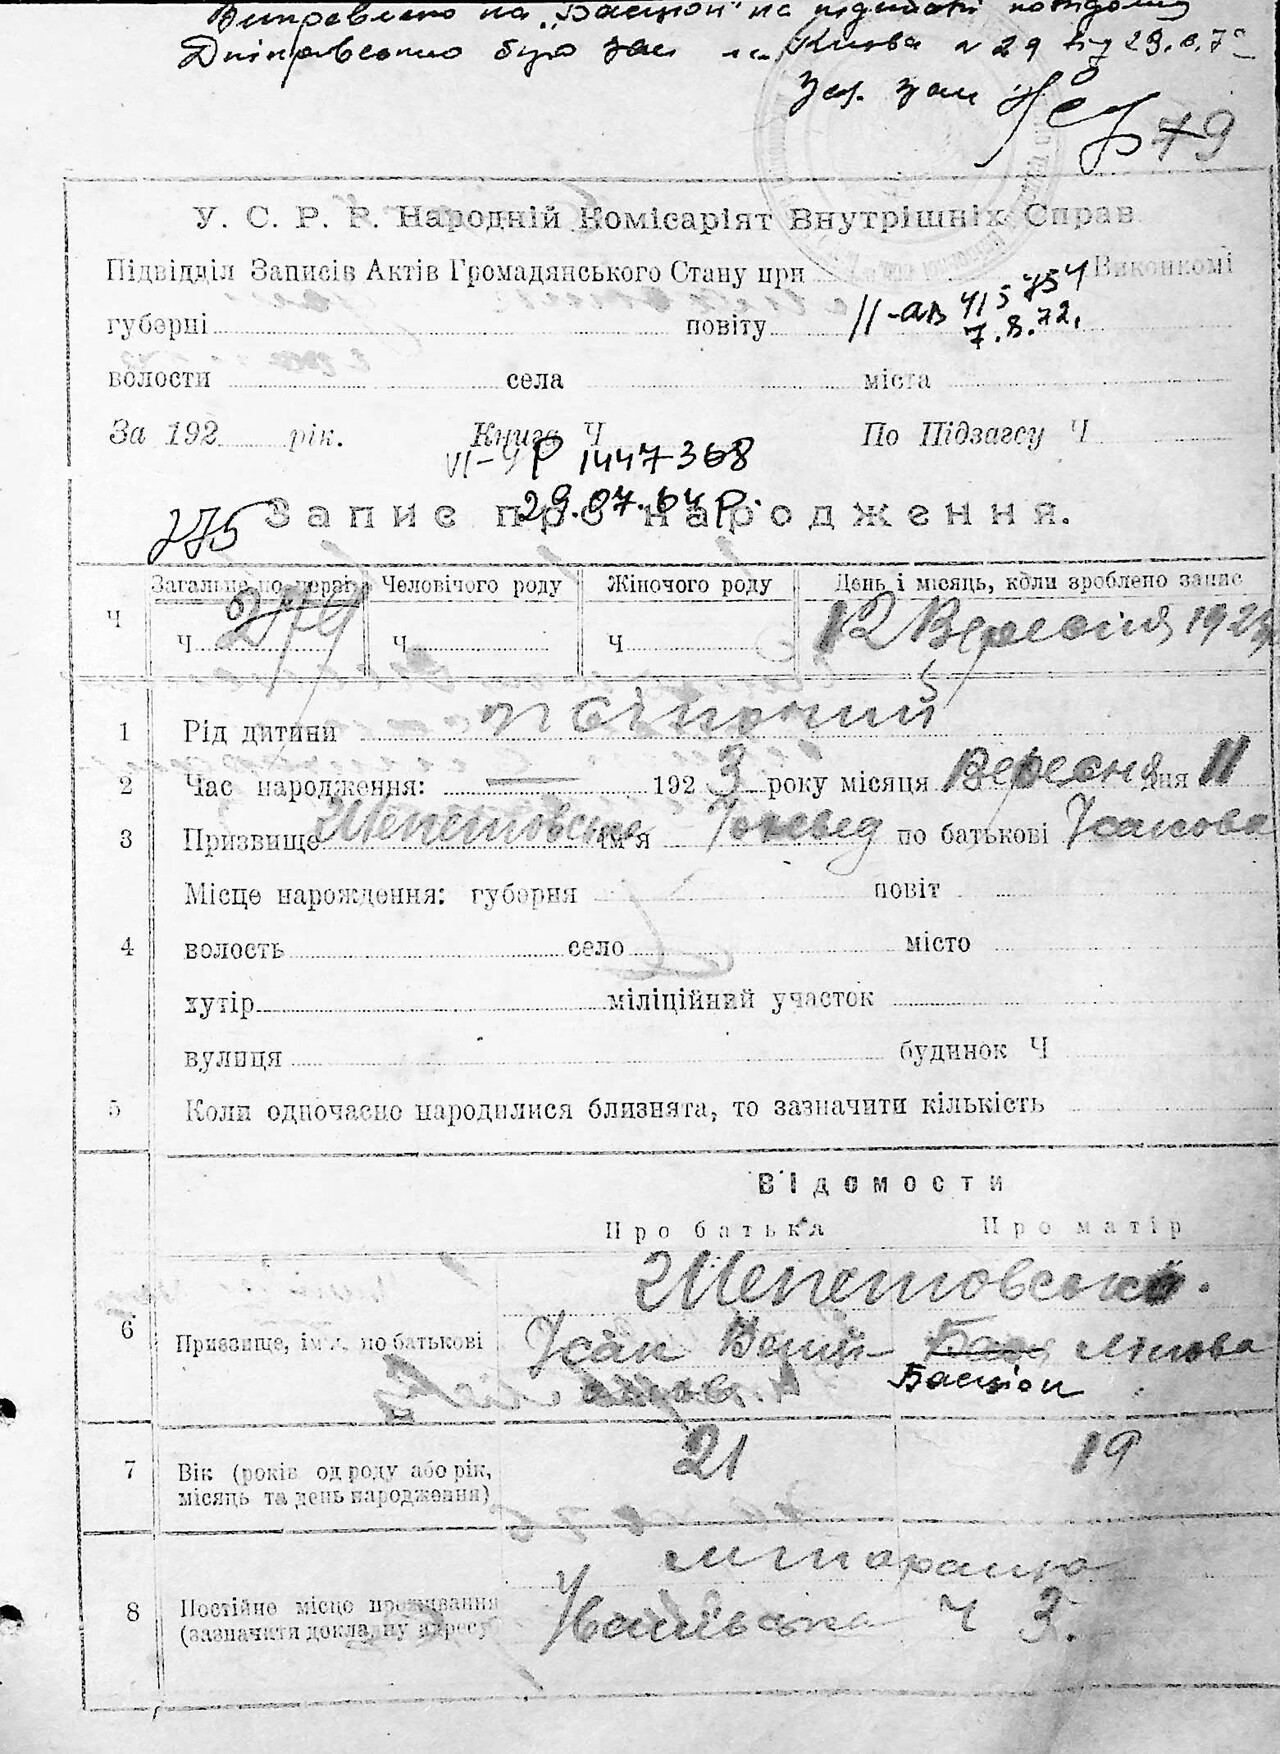 Виправлено на "Басціон" на підставі
Дніпровського бюро заг м. Києва N 29 від 29.
Зав. заг
79
У. С. Р. Р. Народній Комісаріят Внутрішніх Справ
Підвідділ Записів Актів Громадянського Стану при Виконкомі
II-АВ 415754
губерні повіту
7.8.72.
волости села міста
За 192 рік. Книга Ч По Підзагсу Ч
VI-УР 1447368
29.07.64 р.
275 Запис про народження.
Загальне по черзі Человічого роду Жіночого роду День і місяць, коли зроблено запис
Ч Ч 279 Ч Ч 12 Вересня 1923
1 Рід дитини жіночий
2 Час народження: — 192 3 року місяця Вересня дня 11
3 Призвище Шепетовська ім'я по батькові Ісакова
Місце нарождення: губерня повіт
4 волость село місто
хутір міліційний участок
вулиця будинок Ч
5 Коли одночасно народилися близнята, то зазначити кількість
Відомости
Про батька Про матір
Шепетовські.
6 Призвище, ім'я, по батькові Ісак Бася
Басціон
7 Вік (років од роду або рік, 21 19
місяць та день народження)
8 Постійне місце проживання
(зазначити докладну адресу) Ч 3.